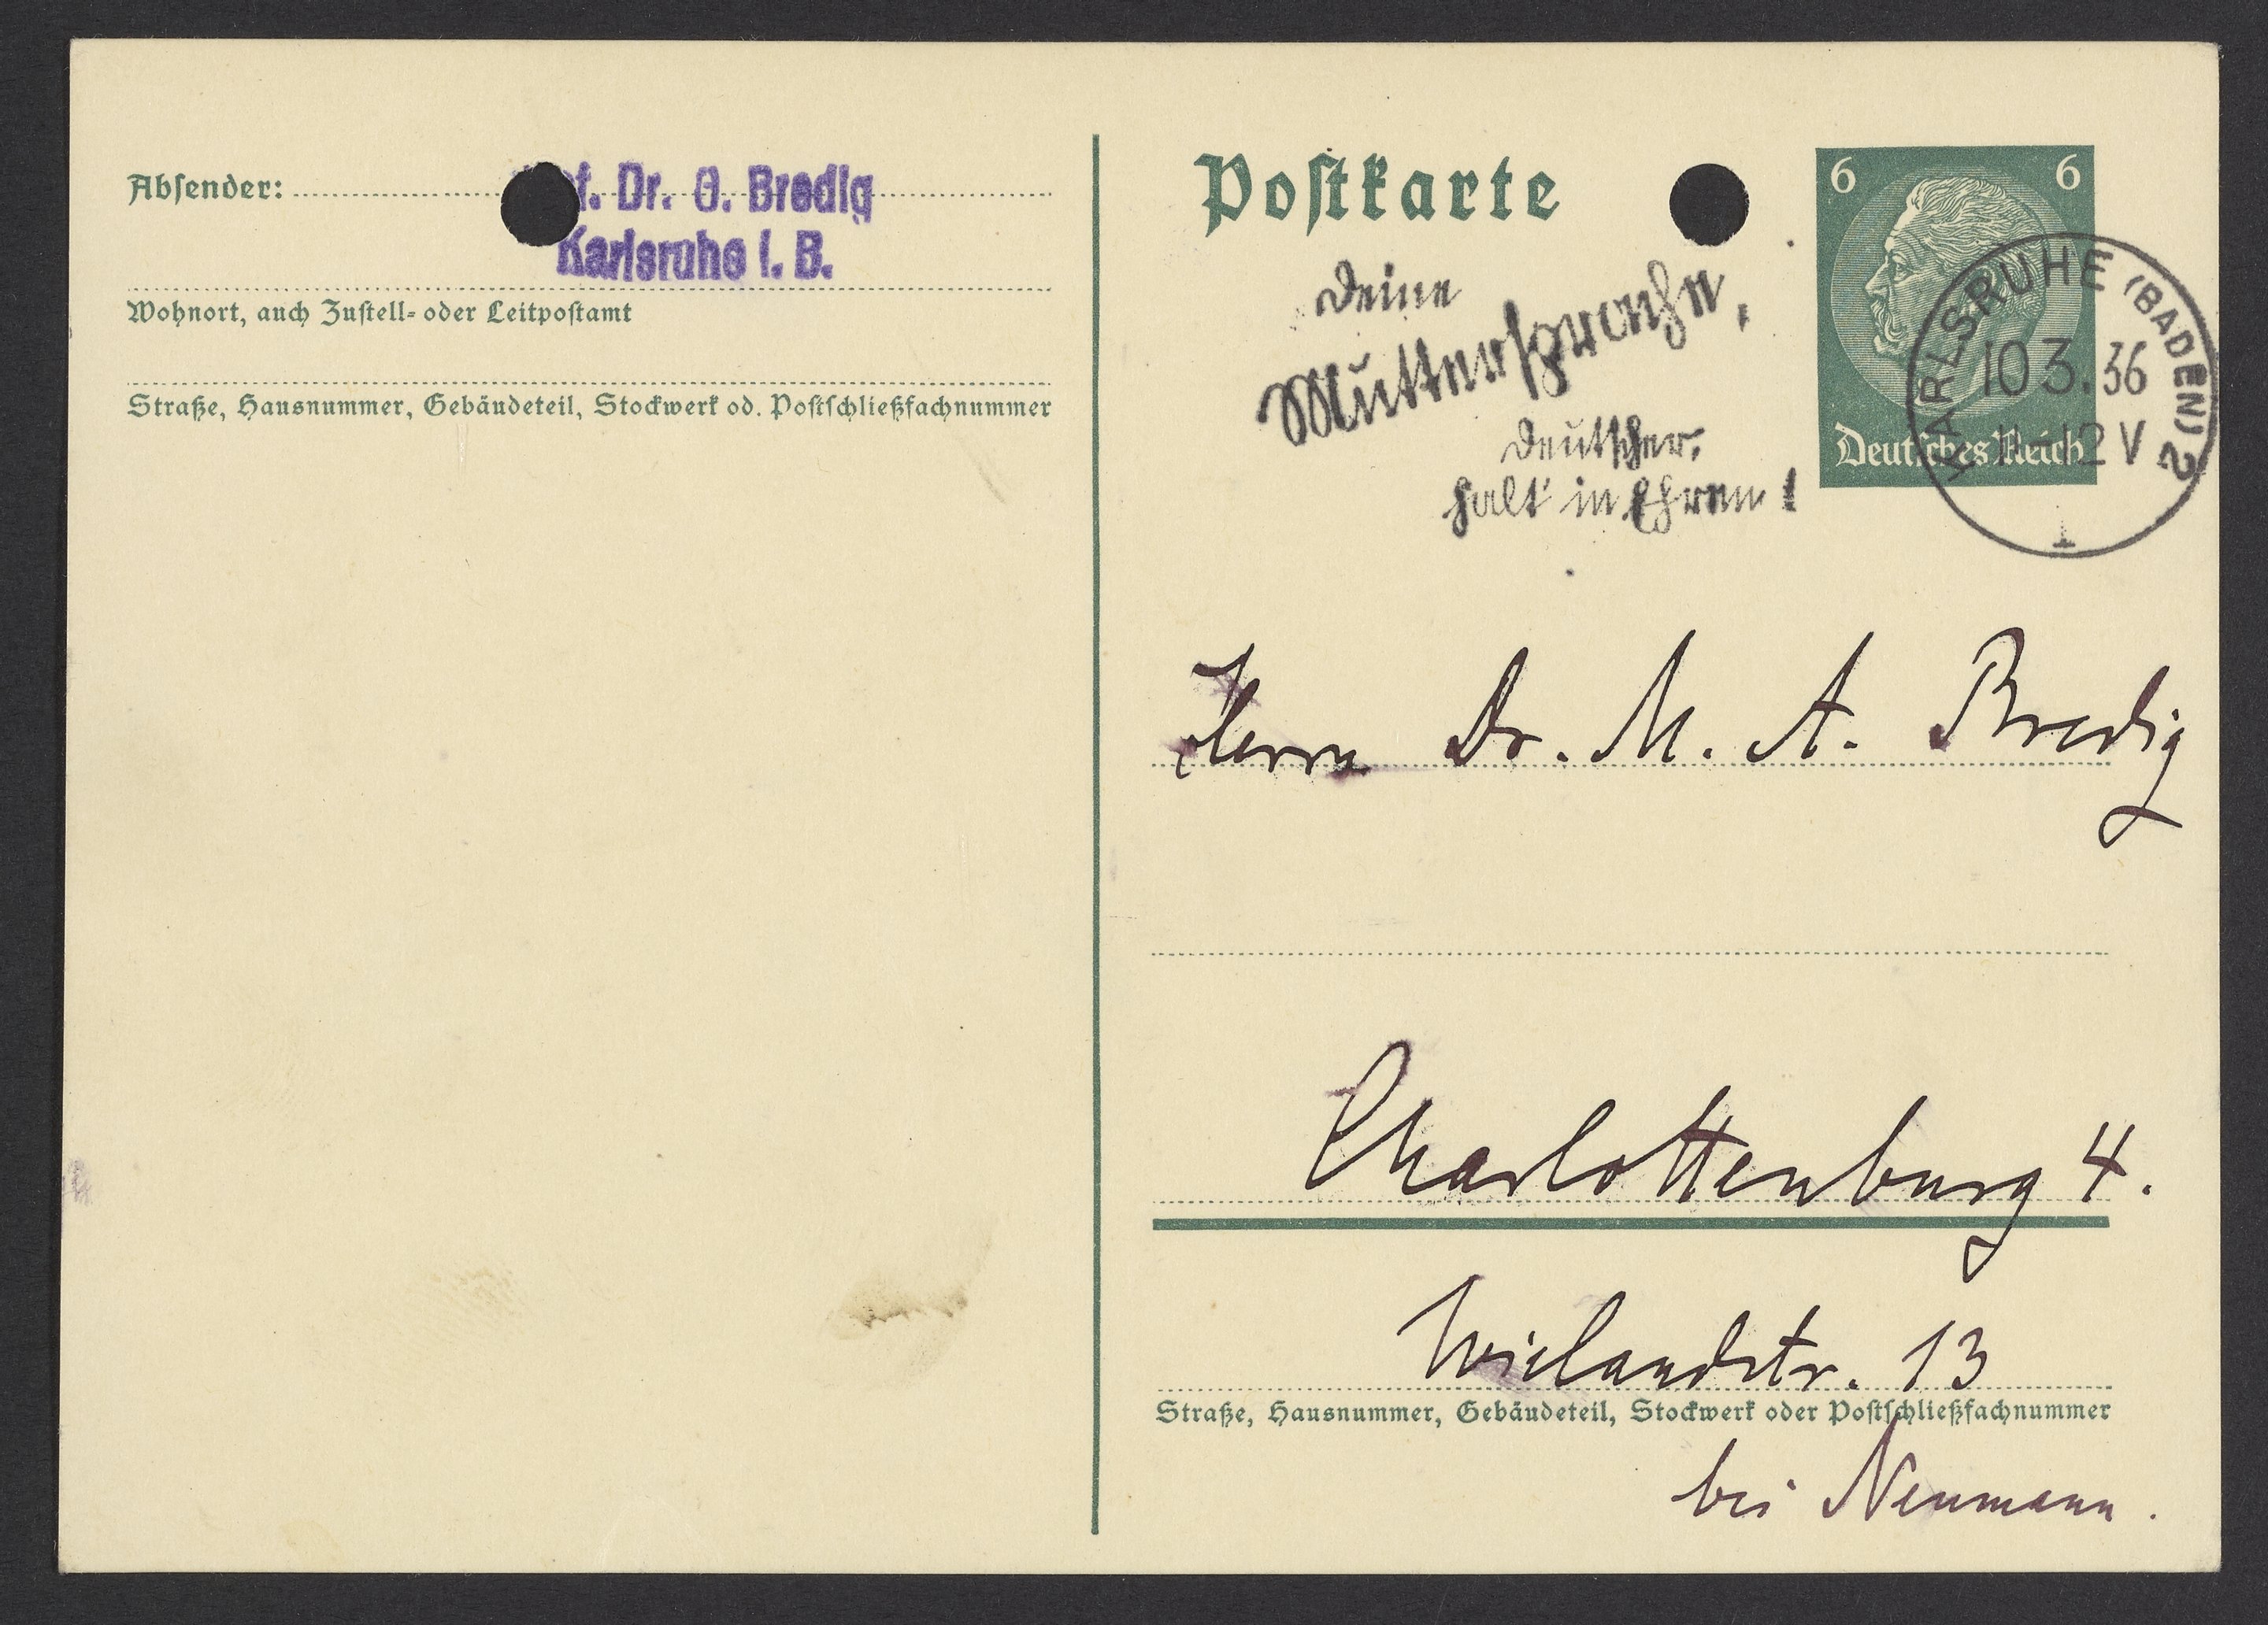 Absender:
f. Dr. G. Bredig
Karlsruhe i. B.
Wohnort, auch Zustell- oder Leitpostamt
Straße, Hausnummer, Gebäudeteil, Stockwerk od. Postschließfachnummer
Postkarte
6 6
Deutsches Reich
KARLSRUHE (BADEN) 2
10 3. 36
11-12 V
Deine
Muttersprache,
Deutscher,
halt in Ehren!
Herrn Dr. M. A. Bredig
Charlottenburg 4.
Wielandstr. 13
Straße, Hausnummer, Gebäudeteil, Stockwerk oder Postschließfachnummer
bei Neumann.